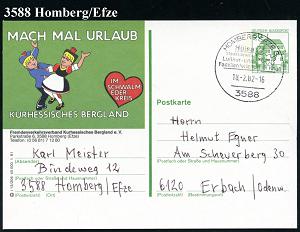 3588 Homberg/Efze
MACH MAL URLAUB
IM
SCHWALM
EDER
KREIS
KURHESSISCHES BERGLAND
Fremdenverkehrsverband Kurhessisches Bergland e. V.
Parkstraße 6, 3588 Homberg (Efze)
HOMBERG
18.-2.82-16
3588
Postkarte
Karl Meister
(Absender)
Bindeweg 12
(Straße und Hausnummer)
3588 Homberg/Efze
(Postleitzahl) (Ort)
Herrn
Helmut Egner
Am Scheuerberg 30
(Straße und Hausnummer)
6120 Erbach/Odenw.
(Postleitzahl) (Bestimmungsort)